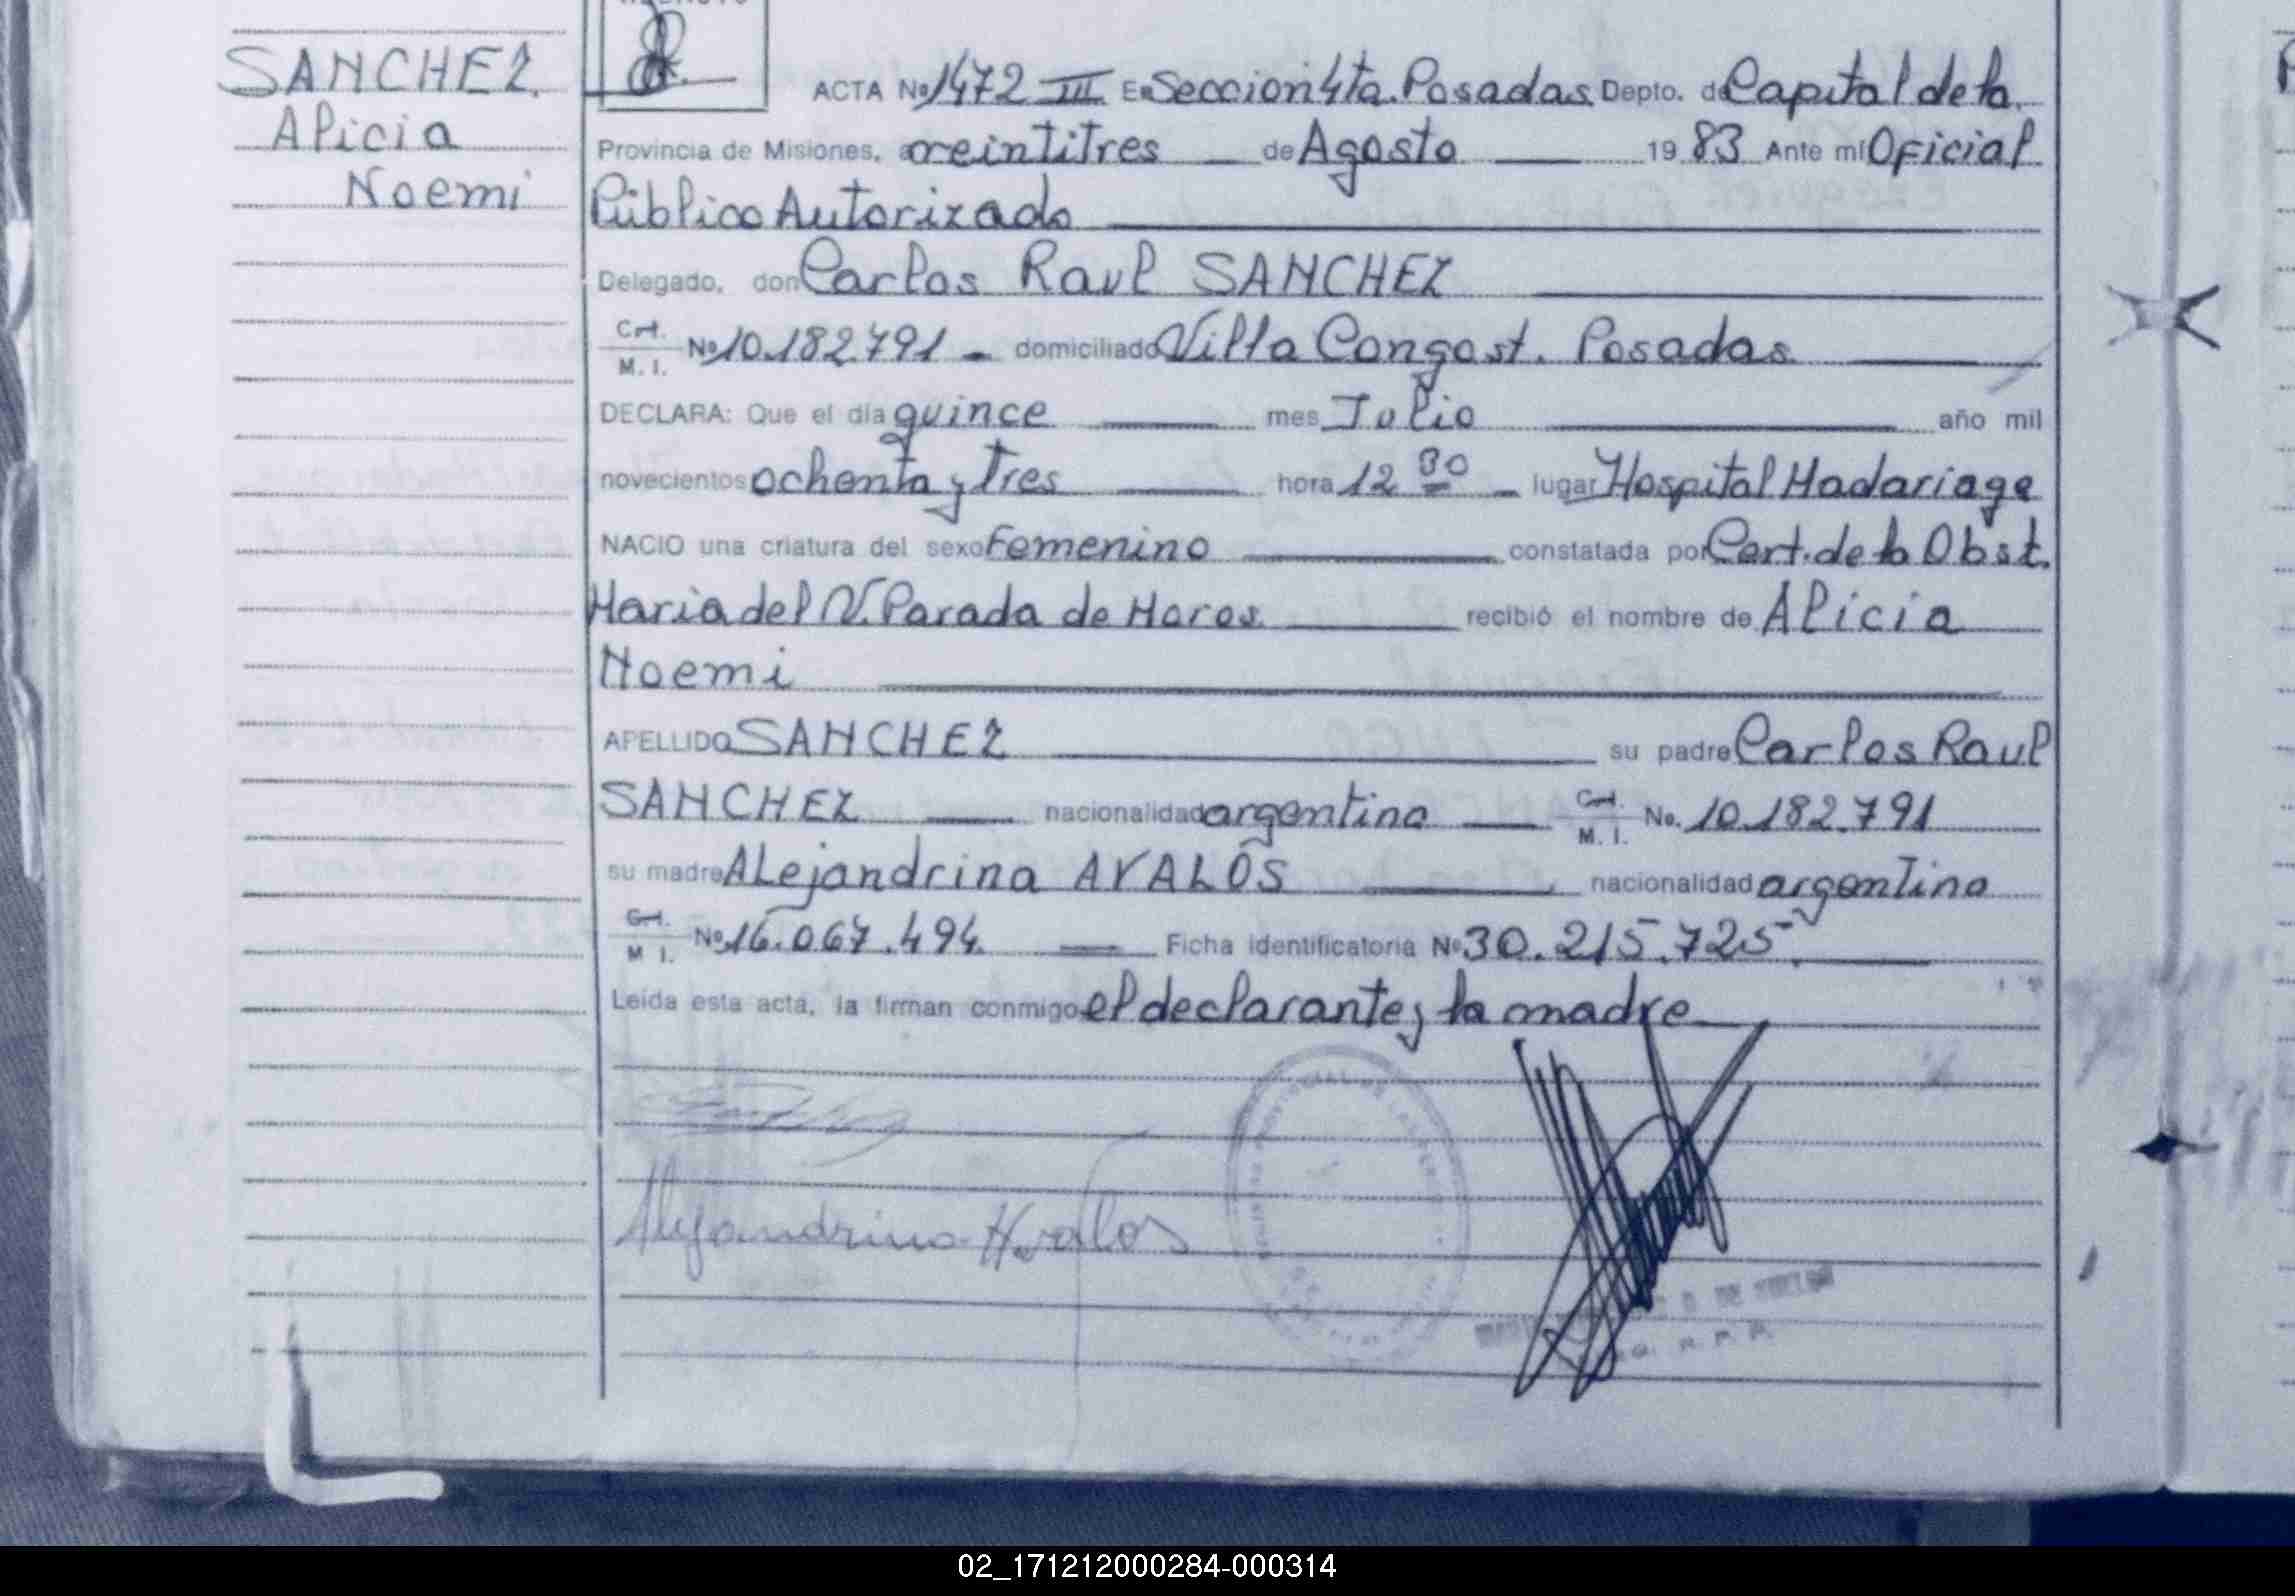 SANCHEZ.
Alicia
Noemi
ACTA Nº 1472 III En Seccion 4ta. Posadas Depto. de Capital de la
Provincia de Misiones, a veintitres de Agosto 1983 Ante mi Oficial
Público Autorizado
Delegado, don Carlos Raul SANCHEZ
M. I. Nº 10.182.791 - domiciliado Villa Congost. Posadas
DECLARA: Que el día quince mes Julio año mil
novecientos ochenta y tres hora 12 30 lugar Hospital Madariaga
NACIO una criatura del sexo Femenino constatada por Cert. de la Obst.
Maria del V. Parada de Mores recibió el nombre de Alicia
Noemi
APELLIDO SANCHEZ su padre Carlos Raul
SANCHEZ nacionalidad argentina M. I. No. 10.182.791
su madre Alejandrina AVALOS nacionalidad argentina
M I. Nº 16.067.494 Ficha identificatoria Nº 30.215.725.
Leída esta acta, la firman conmigo el declarante y la madre
Alejandrina Avalos
02_171212000284-000314